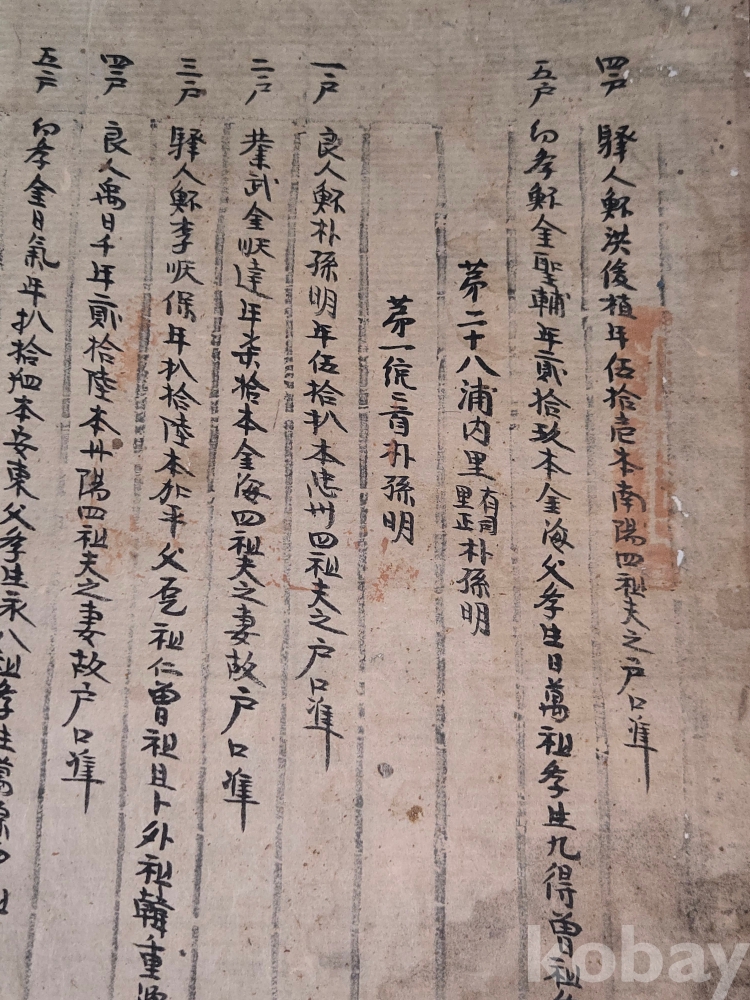 四戶 驛人鰥洪俊植年伍拾壱本南陽四祖夫之戶口準
五戶 幼李鰥金聖輔年貳拾玖本金海父孝生日萬祖孝生九得曾祖
第二十八浦内里 有司 里正 朴孫明
第一統 首朴孫明
一戶 良人鰥朴孫明年伍拾扒本忠州四祖夫之戶口準
二戶 業武金順達年柒拾本金海四祖夫之妻故戶口準
三戶 驛人鰥李順保年扒拾陸本加平父 祖仁曾祖且卜外祖韓重
四戶 良人禹日千年貳拾陸本丹陽四祖夫之妻故戶口準
五戶 金日氣年扒拾四本安東父孝生永八祖孝生萬
kobay